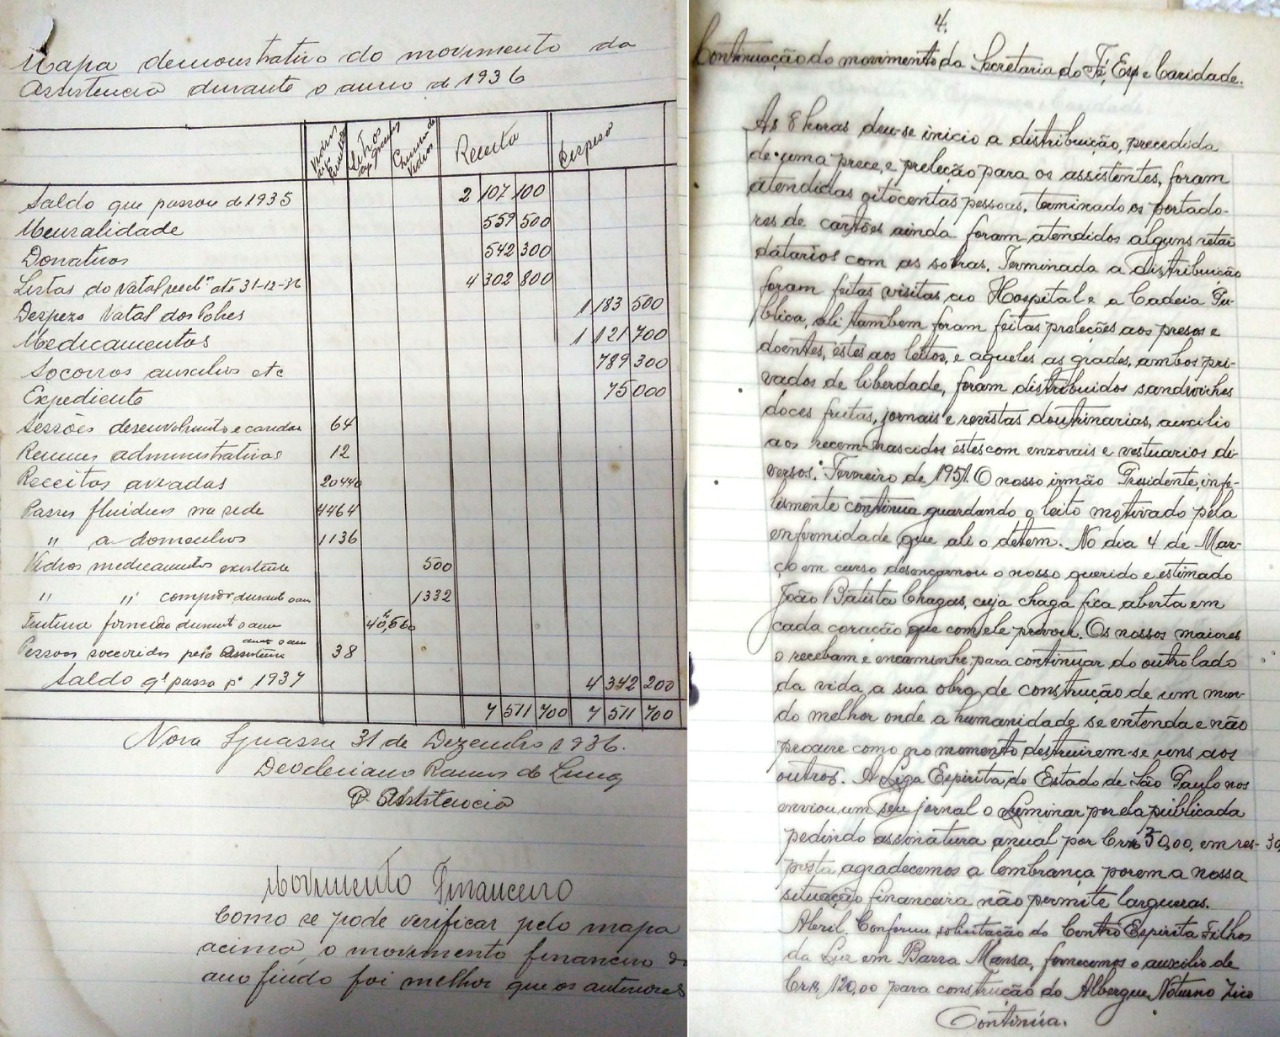 Mapa demonstrativo do movimento da
Assistencia durante o anno de 1936
Receita Despesa
Saldo que passou de 1935 2 107 100
Mensalidade 559 500
Donativos 542 300
Listas do Natal receb. até 31-12-36 4 302 800
Despeza Natal dos Pobres 1 183 500
Medicamentos 1 121 700
Socorros auxilios etc 789 300
Expediente 75 000
Sessões desenvolvimento e caridade 64
Reunioes administrativas 12
Receitas aviadas 20440
Passes fluidicos na sede 4464
" a domicilios 1136
Vidros medicamentos existente 500
" " comprados durante o anno 1332
Tintura fornecida durante o anno
Pessoas soccorridas pela Assistencia durante o anno 38
Saldo q. passa p. 1937 4 342 200
7 511 700 7 511 700
Nova Iguassu 31 de Dezembro 1936.
Deocleciano Ramos de
P. Assistencia
Movimento Financeiro
Como se pode verificar pelo mapa
acima, o movimento financeiro do
ano findo foi melhor que os anteriores
4.
Continuação do movimento da Secretaria do Fé, Esp e Caridade.
As 8 horas deu-se inicio a distribuição, precedida
de uma prece, e preleção para os assistentes, foram
atendidas oitocentas pessoas, terminado os portado-
res de cartões ainda foram atendidos alguns retar
datarios com as sobras. Terminada a distribuição
foram feitas visitas ao Hospital e a Cadeia Pu-
blica, ali tambem foram feitas preleções aos presos e
doentes, estes aos leitos, e aqueles as grades, ambos pri-
vados de liberdade, foram distribuidos sandwiches
doces frutas, jornais e revistas doutrinarias, auxilio
aos recem-nascidos estes com enxovais e vestuarios di-
versos. Fevreiro de 1951. O nosso irmão Presidente, infe-
lismente continua guardando o leito motivado pela
enfermidade que ali o detem. No dia 4 de Mar-
ço em curso desencarnou o nosso querido e estimado
João Batista Chagas, cuja chaga fica aberta em
cada coração que com ele privou. Os nossos maiores
o recebam e encaminhe para continuar do outro lado
da vida, a sua obra de construção de um mun-
do melhor onde a humanidade se entenda e não
procure como no momento destruirem-se uns aos
outros. A Liga Espirita do Estado de São Paulo nos
enviou um seu jornal o Seminar por ela publicada
pedindo assinatura anual por Cr$ 30,00, em res- 30,
posta, agradecemos a lembrança porem a nossa
situação financeira não permite larguesas.
Abril. Conforme solicitação do Centro Espirita Filhos
da Luz em Barra Mansa, fornecemos o auxilio de
Cr$ 120,00 para construção do Albergue Noturno Zico
Continúa.